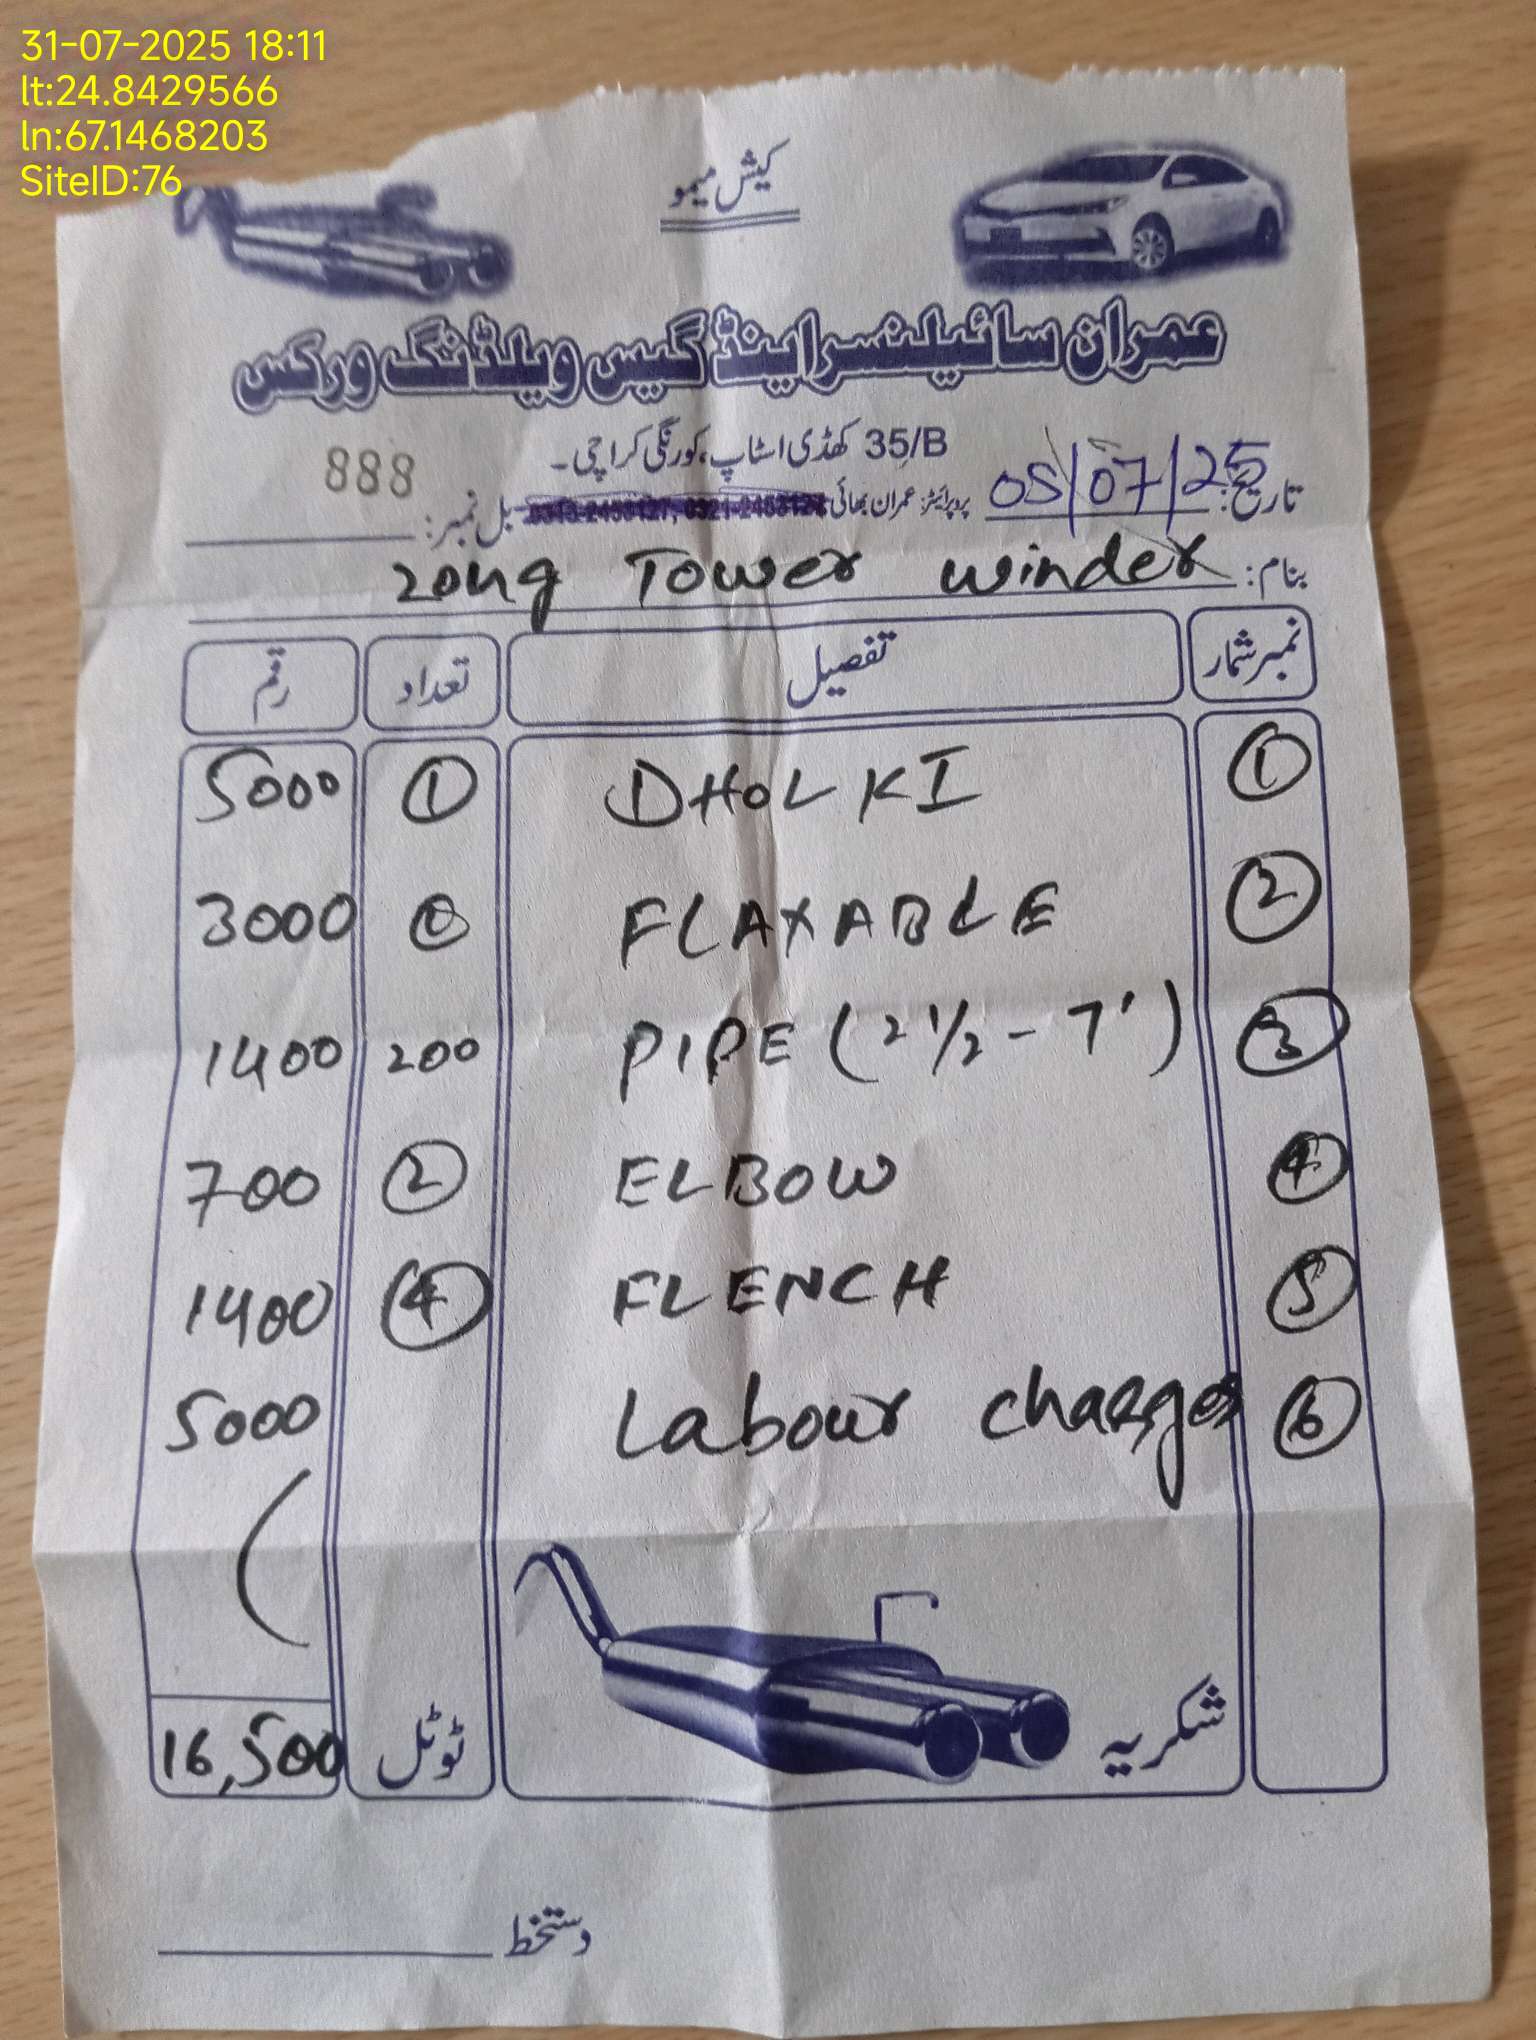 31-07-2025 18:11
lt:24.8429566
ln:67.1468203
SiteID:76
کیش میمو
عمران سائیلنسر اینڈ گیس ویلڈنگ ورکس
35/B کھڈی اسٹاپ، کورنگی کراچی۔
تاریخ: 05/07/25 پروپرائٹر: عمران بھائی بل نمبر: 888
بنام: zong Tower winder
نمبر شمار تفصیل تعداد رقم
1 DHOLKI 1 5000
2 FLAXABLE 3000
3 PIPE (2 1/2 - 7') 200 1400
4 ELBOW 2 700
5 FLENCH 4 1400
6 Labour charges 5000
شکریہ ٹوٹل 16,500
دستخط